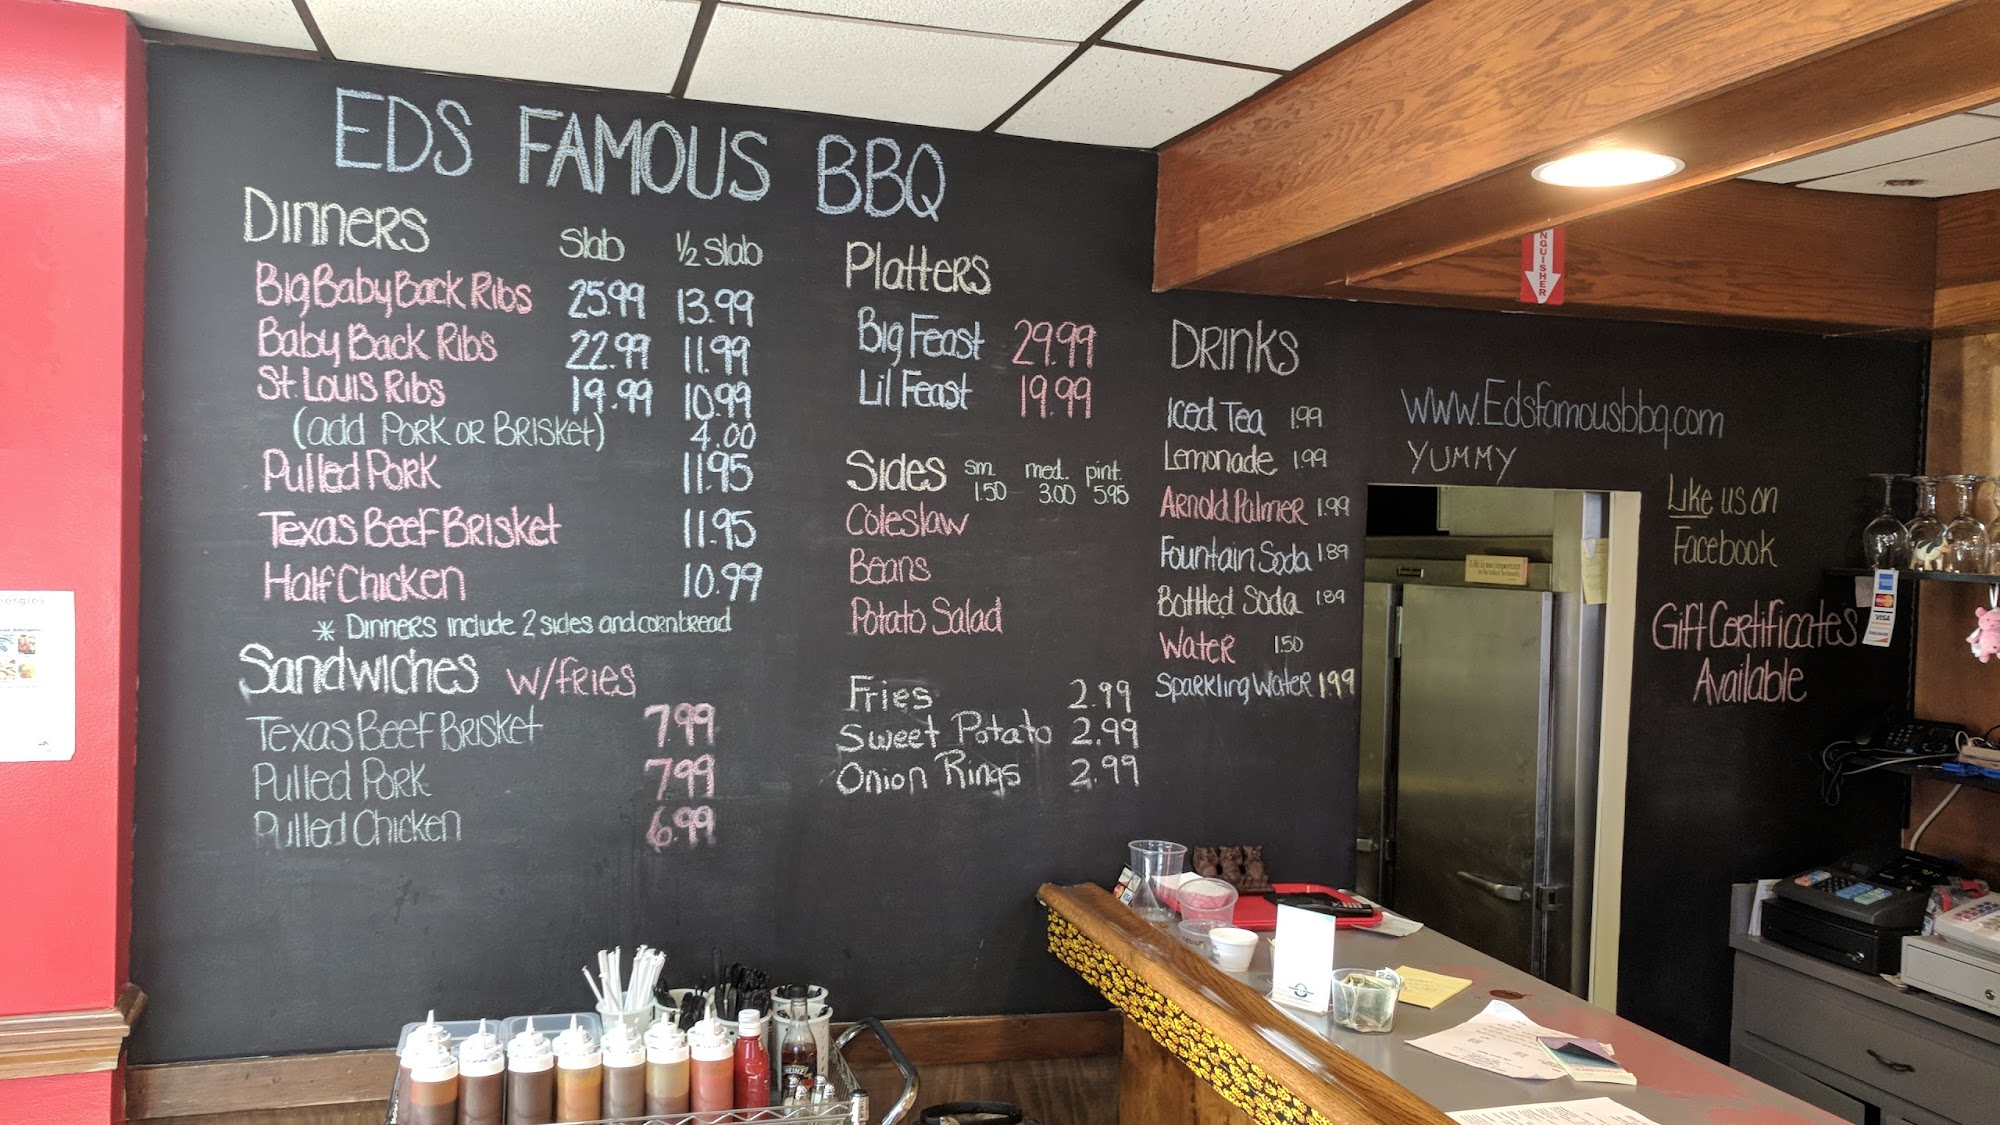 EDS FAMOUS BBQ
Dinners Slab 1/2 Slab
Big Baby Back Ribs 25.99 13.99
Baby Back Ribs 22.99 11.99
St. Louis Ribs 19.99 10.99
(add Pork or Brisket) 4.00
Pulled Pork 11.95
Texas Beef Brisket 11.95
Half Chicken 10.99
* Dinners include 2 sides and cornbread
Sandwiches w/fries
Texas Beef Brisket 7.99
Pulled Pork 7.99
Pulled Chicken 6.99
Platters
Big Feast 29.99
Lil Feast 19.99
Sides sm. med. pint.
1.50 3.00 5.95
Coleslaw
Beans
Potato Salad
Fries 2.99
Sweet Potato 2.99
Onion Rings 2.99
DRINKS
Iced Tea 1.99
Lemonade 1.99
Arnold Palmer 1.99
Fountain Soda 1.89
Bottled Soda 1.89
Water 1.50
Sparkling Water 1.99
www.Edsfamousbbq.com
YUMMY
Like us on
Facebook
Gift Certificates
Available
VISA
HEINZ